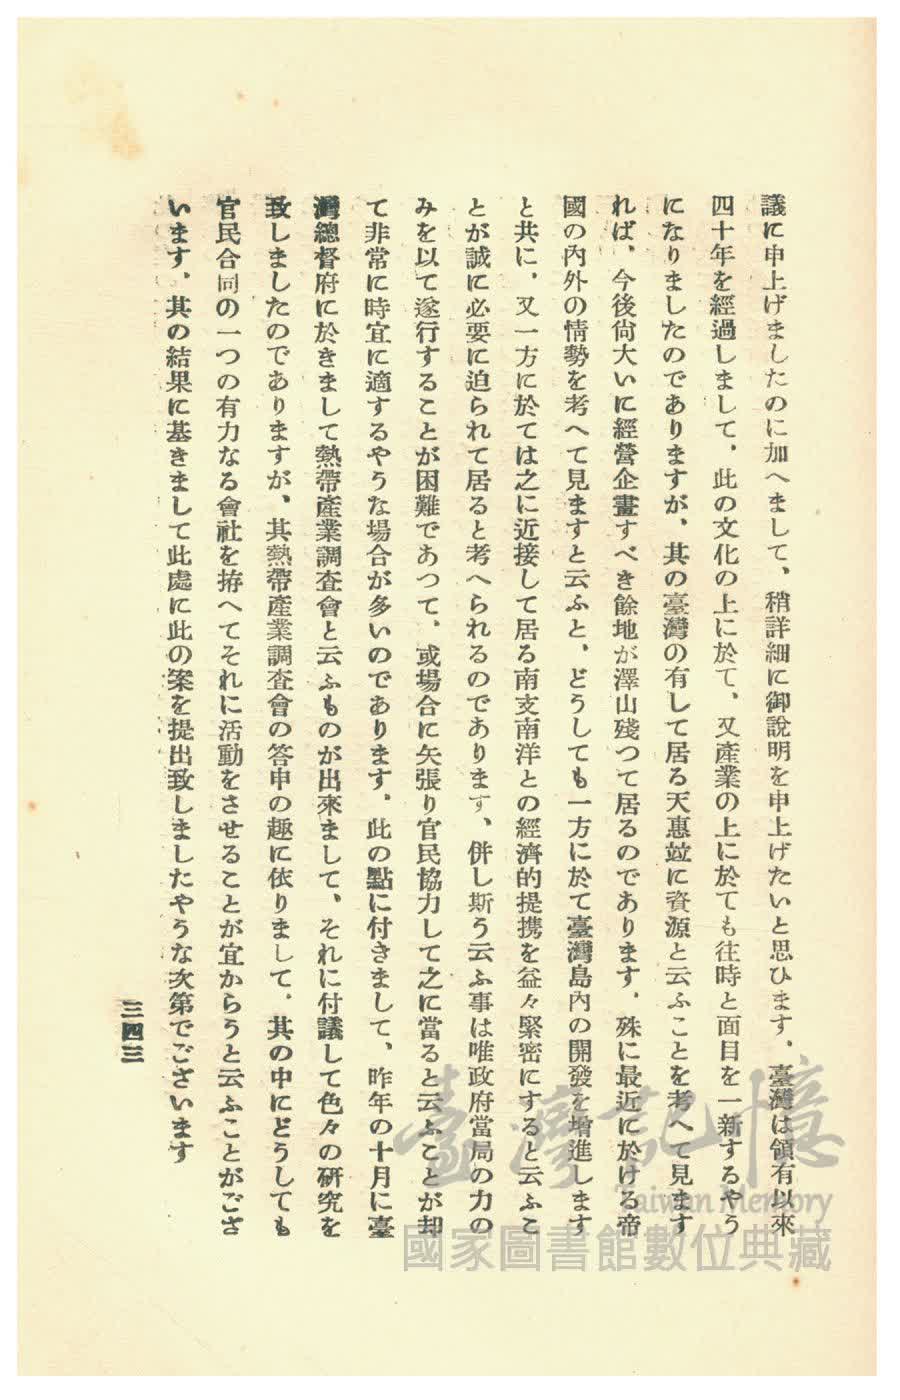 議に申上げましたのに加へまして、稍詳細に御說明を申上げたいと思ひます。臺灣は領有以來
四十年を經過しまして、此の文化の上に於て、又產業の上に於ても往時と面目を一新するやう
になりましたのでありますが、其の臺灣の有して居る天惠竝に資源と云ふことを考へて見ます
れば、今後尙大いに經營企畫すべき餘地が澤山殘つて居るのであります。殊に最近に於ける帝
國の內外の情勢を考へて見ますと云ふと、どうしても一方に於て臺灣島內の開發を增進します
と共に、又一方に於ては之に近接して居る南支南洋との經濟的提携を益々緊密にすると云ふこ
とが誠に必要に迫られて居ると考へられるのであります、併し斯う云ふ事は唯政府當局の力の
みを以て遂行することが困難であつて、或場合に矢張り官民協力して之に當ると云ふことが却
て非常に時宜に適するやうな場合が多いのであります。此の點に付きまして、昨年の十月に臺
灣總督府に於きまして熱帶產業調査會と云ふものが出來まして、それに付議して色々の硏究を
致しましたのでありますが、其熱帶產業調査會の答申の趣に依りまして、其の中にどうしても
官民合同の一つの有力なる會社を拵へてそれに活動をさせることが宜からうと云ふことがござ
います。其の結果に基きまして此處に此の案を提出致しましたやうな次第でございます
三四三
臺灣記憶
Taiwan Memory
國家圖書館數位典藏